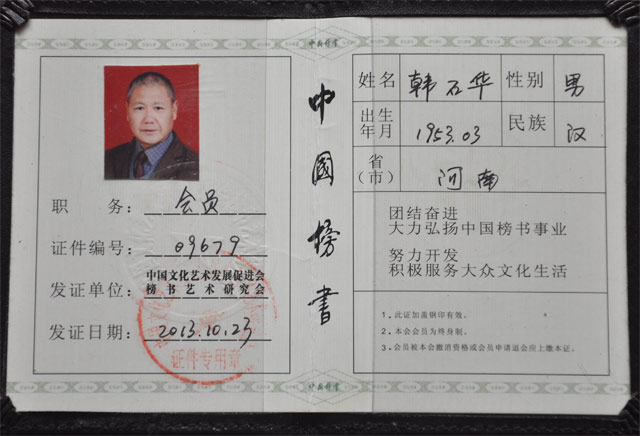 中国榜书
职 务：会员
证件编号：09679
发证单位：中国文化艺术发展促进会
榜书艺术研究会
发证日期：2013.10.23
证件专用章
中國榜書
姓名 韩石华 性别 男
出生年月 1953.03 民族 汉
省（市） 河南
团结奋进
大力弘扬中国榜书事业
努力开发
积极服务大众文化生活
1、此证加盖钢印有效。
2、本会会员为终身制。
3、会员被本会撤消资格或会员申请退会应上缴本证。
中国榜书